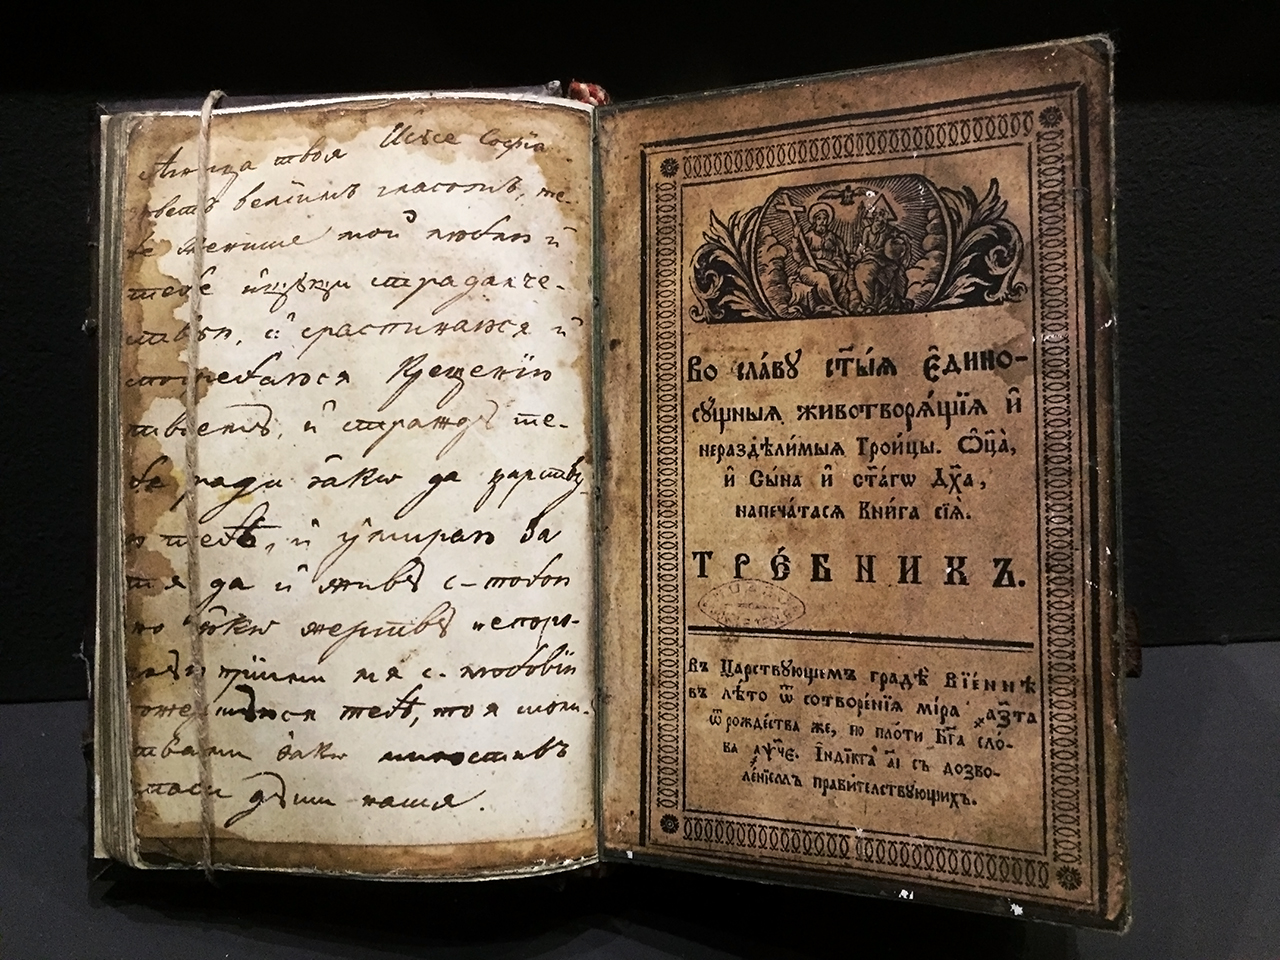 Агница твоя Іисусе Софїа
зоветъ велїимъ гласомъ, те-
бе женише мой люблю и҆
тебе и҆щущи страдалче-
ствую, и҆ сраспинаюся и҆
спогребаюся Крещенїю
твоему, и҆ стражду те-
бе ради ꙗ҆кѡ да царству
ю въ тебѣ, и҆ умираю за
тя да и҆ живу с-тобою
но ꙗ҆кѡ жертву непоро-
чную прїими мя с-любовїю
пожершуюся тебѣ, тоя моли-
твами ꙗ҆кѡ милостивъ
спаси души нашя.
Во сла́ву ст҃ы́ѧ Є҆дино-
сꙋ́щныѧ животворѧ́щїѧ и҆
нераздѣли́мыѧ Тро́йцы. Ѻ҆ц҃а̀,
и҆ Сы́на и҆ ст҃а́гѡ Дх҃а,
напеча́тасѧ Кни́га сїѧ̀.
ТРЕ́БНИКЪ.
Въ Царствꙋющемъ градѣ̀ Вїе́ннѣ
въ лѣ́то ѿ сотворе́нїѧ мі́ра
ѿ рождества̀ же, по пло́ти Бг҃а сло́-
ва І҆ндїкта̀ а҃і съ дозво-
ле́нїемъ прави́телствꙋющихъ.